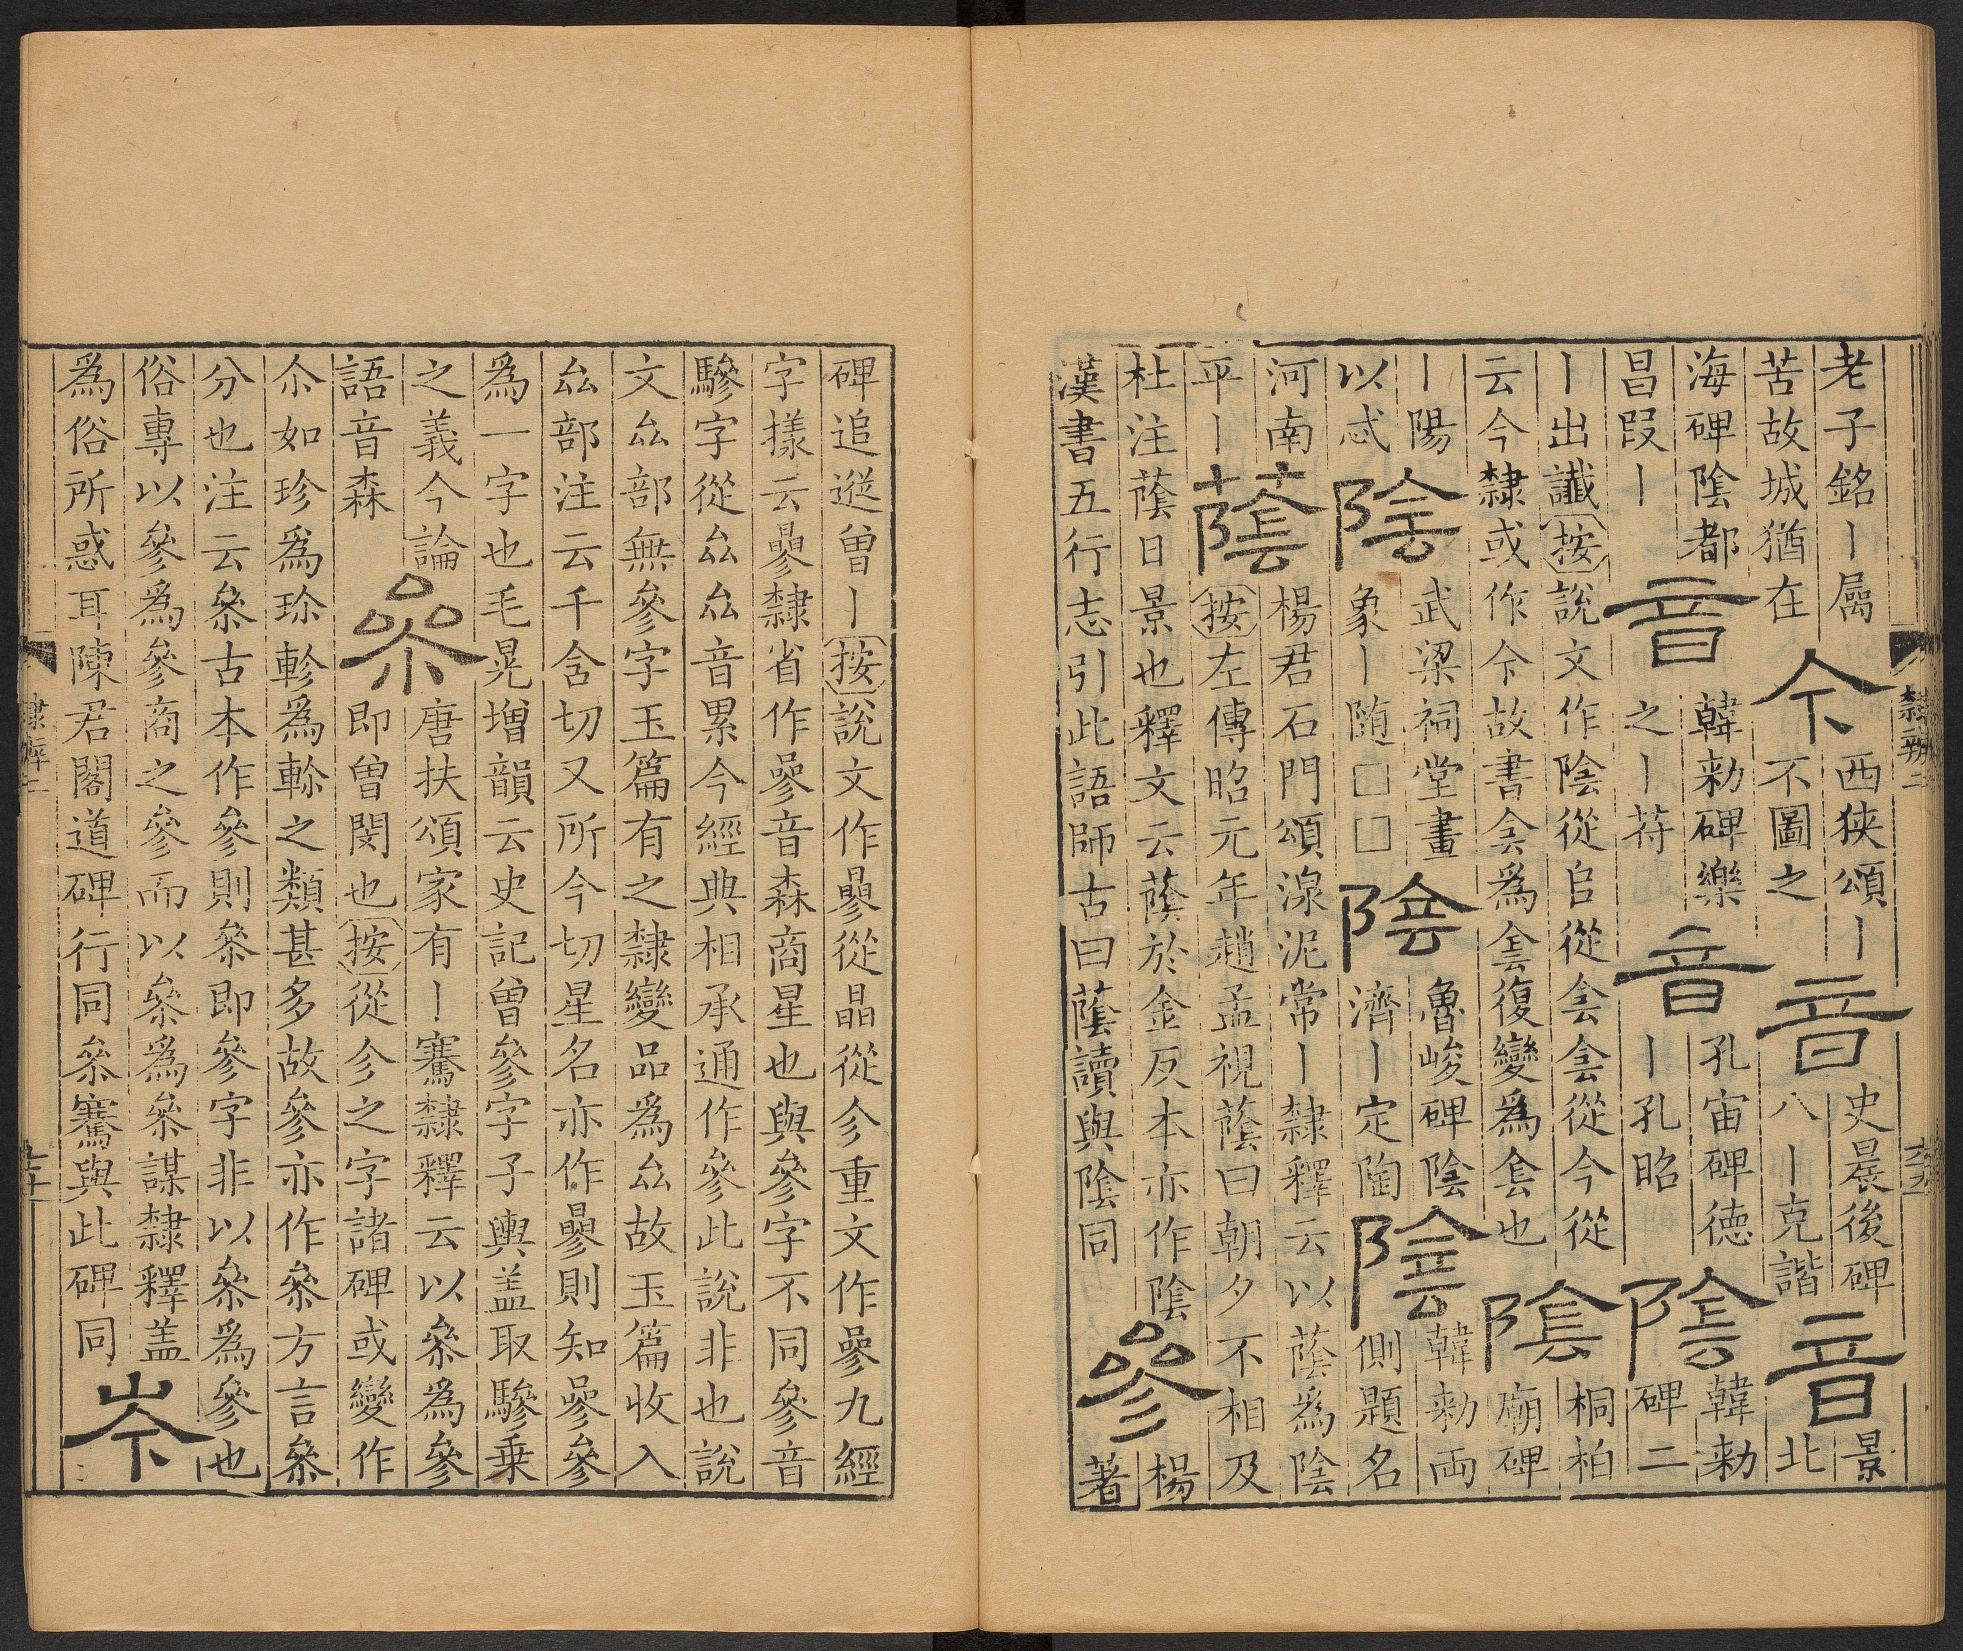 老子銘丨屬
苦故城猶在
今
西狹頌丨
不圖之
音
史晨後碑
八丨克諧
音
景
北
海碑陰都
昌叚丨
音
韓勑碑樂
之丨苻
音
孔宙碑德
丨孔昭
陰
韓勑
碑二
丨出讖按說文作陰從𨸏從侌侌從今從
云今隸或作仐故書侌爲侌復變爲套也
陰
桐柏
廟碑
丨陽
以忒
陰
武梁祠堂畫
象丨随□□
陰
魯峻碑陰
濟丨定陶
陰
韓勑兩
側題名
河南
平丨
蔭
楊君石門頌湶泥常丨隸釋云以蔭爲陰
按左傳昭元年趙孟視蔭曰朝夕不相及
杜注蔭日景也釋文云蔭於金反本亦作陰
漢書五行志引此語師古曰蔭讀與陰同
參
楊
著
碑追遰曾丨按說文作曑從晶從㐱重文作曑九經
字㨾云曑隸省作參音森商星也與參字不同參音
驂字從厽厽音累今經典相承通作參此說非也說
文厽部無參字玉篇有之隸變品爲厽故玉篇收入
厽部注云千含切又所今切星名亦作曑則知曑參
爲一字也毛晃增韻云史記曾參字子輿盖取驂乗
之義今論
語音森
叅
唐扶頌家有丨騫隸釋云以叅爲參
即曾閔也按從㐱之字諸碑或變作
尒如珍爲珎軫爲軫之類甚多故參亦作叅方言叅
分也注云叅古本作參則叅即參字非以叅爲參也
俗專以參爲參商之參而以叅爲叅謀隸釋盖
爲俗所惑耳陳君閣道碑行同叅騫與此碑同
岑
隸辨二